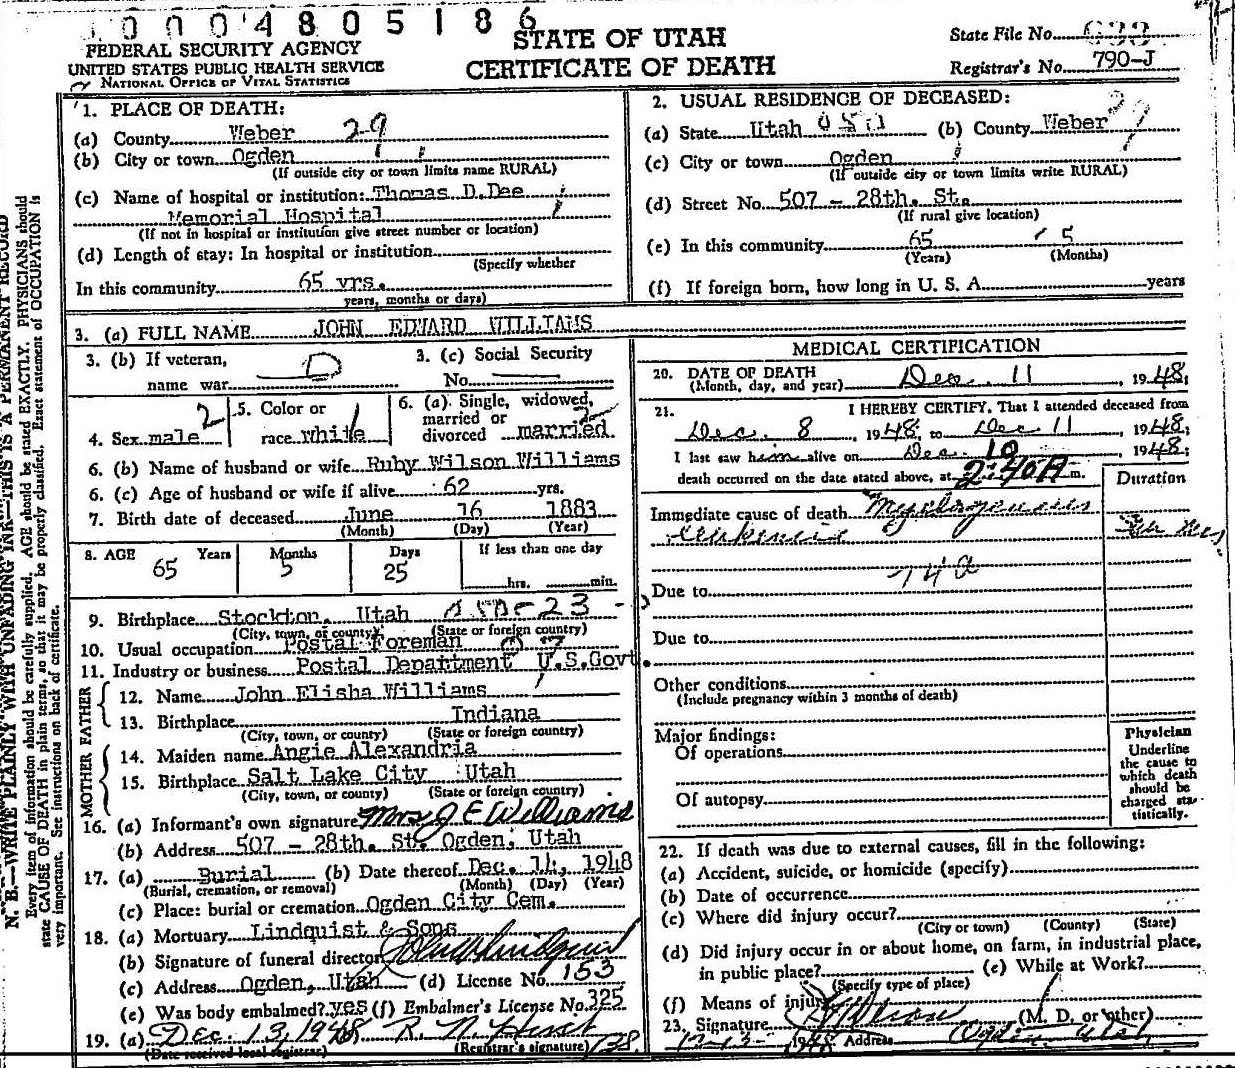 0004805186
FEDERAL SECURITY AGENCY
UNITED STATES PUBLIC HEALTH SERVICE
NATIONAL OFFICE OF VITAL STATISTICS
STATE OF UTAH
CERTIFICATE OF DEATH
State File No.
Registrar's No. 790-J
1. PLACE OF DEATH:
(a) County Weber 29
(b) City or town Ogden
(If outside city or town limits name RURAL)
(c) Name of hospital or institution: Thomas D. Dee
Memorial Hospital
(If not in hospital or institution give street number or location)
(d) Length of stay: In hospital or institution
(Specify whether
In this community 65 yrs.
years, months or days)
2. USUAL RESIDENCE OF DECEASED:
(a) State Utah (b) County Weber
(c) City or town Ogden
(If outside city or town limits write RURAL)
(d) Street No. 507 - 28th. St.
(If rural give location)
(e) In this community 65 5
(Years) (Months)
(f) If foreign born, how long in U. S. A. years
3. (a) FULL NAME JOHN EDWARD WILLIAMS
3. (b) If veteran,
name war
3. (c) Social Security
No.
4. Sex male 2
5. Color or
race White
6. (a) Single, widowed,
married or
divorced married
6. (b) Name of husband or wife Ruby Wilson Williams
6. (c) Age of husband or wife if alive 62 yrs.
7. Birth date of deceased June 16 1883
(Month) (Day) (Year)
8. AGE Years Months Days If less than one day
65 5 25
hrs. min.
9. Birthplace Stockton, Utah
(City, town, or county) (State or foreign country)
10. Usual occupation Postal Foreman
11. Industry or business Postal Department U.S.Govt.
FATHER
12. Name John Elisha Williams
13. Birthplace Indiana
(City, town, or county) (State or foreign country)
MOTHER
14. Maiden name Angie Alexandria
15. Birthplace Salt Lake City Utah
(City, town, or county) (State or foreign country)
16. (a) Informant's own signature Mrs J E Williams
(b) Address 507 - 28th. St. Ogden, Utah
17. (a) Burial (b) Date thereof Dec. 14, 1948
(Burial, cremation, or removal) (Month) (Day) (Year)
(c) Place: burial or cremation Ogden City Cem.
18. (a) Mortuary Lindquist & Sons
(b) Signature of funeral director
(c) Address Ogden, Utah (d) License No. 153
(e) Was body embalmed? yes (f) Embalmer's License No. 325
19. (a) Dec. 13, 1948
(Date received local registrar) (Registrar's signature)
MEDICAL CERTIFICATION
20. DATE OF DEATH
(Month, day, and year) Dec. 11, 1948;
21. I HEREBY CERTIFY, That I attended deceased from
Dec. 8, 1948, to Dec 11, 1948;
I last saw him alive on Dec. 10, 1948;
death occurred on the date stated above, at 2:40A m.
Duration
Immediate cause of death Myelogenous
Leukemia
74a
Due to
Due to
Other conditions
(Include pregnancy within 3 months of death)
Major findings:
Of operations
Of autopsy
Physician
Underline
the cause to
which death
should be
charged sta-
tistically.
22. If death was due to external causes, fill in the following:
(a) Accident, suicide, or homicide (specify)
(b) Date of occurrence
(c) Where did injury occur?
(City or town) (County) (State)
(d) Did injury occur in or about home, on farm, in industrial place,
in public place? (e) While at Work?
(Specify type of place)
(f) Means of injury
23. Signature (M. D. or other)
12-13-1948 Address Ogden Utah
N. B.—WRITE PLAINLY WITH UNFADING INK—THIS IS A PERMANENT RECORD
Every item of information should be carefully supplied. AGE should be stated EXACTLY. PHYSICIANS should
state CAUSE OF DEATH in plain terms, so that it may be properly classified. Exact statement of OCCUPATION is
very important. See instructions on back of certificate.